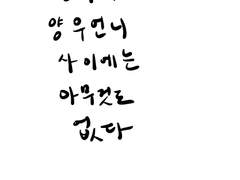 양우언니
사이에는
아무것도
없다